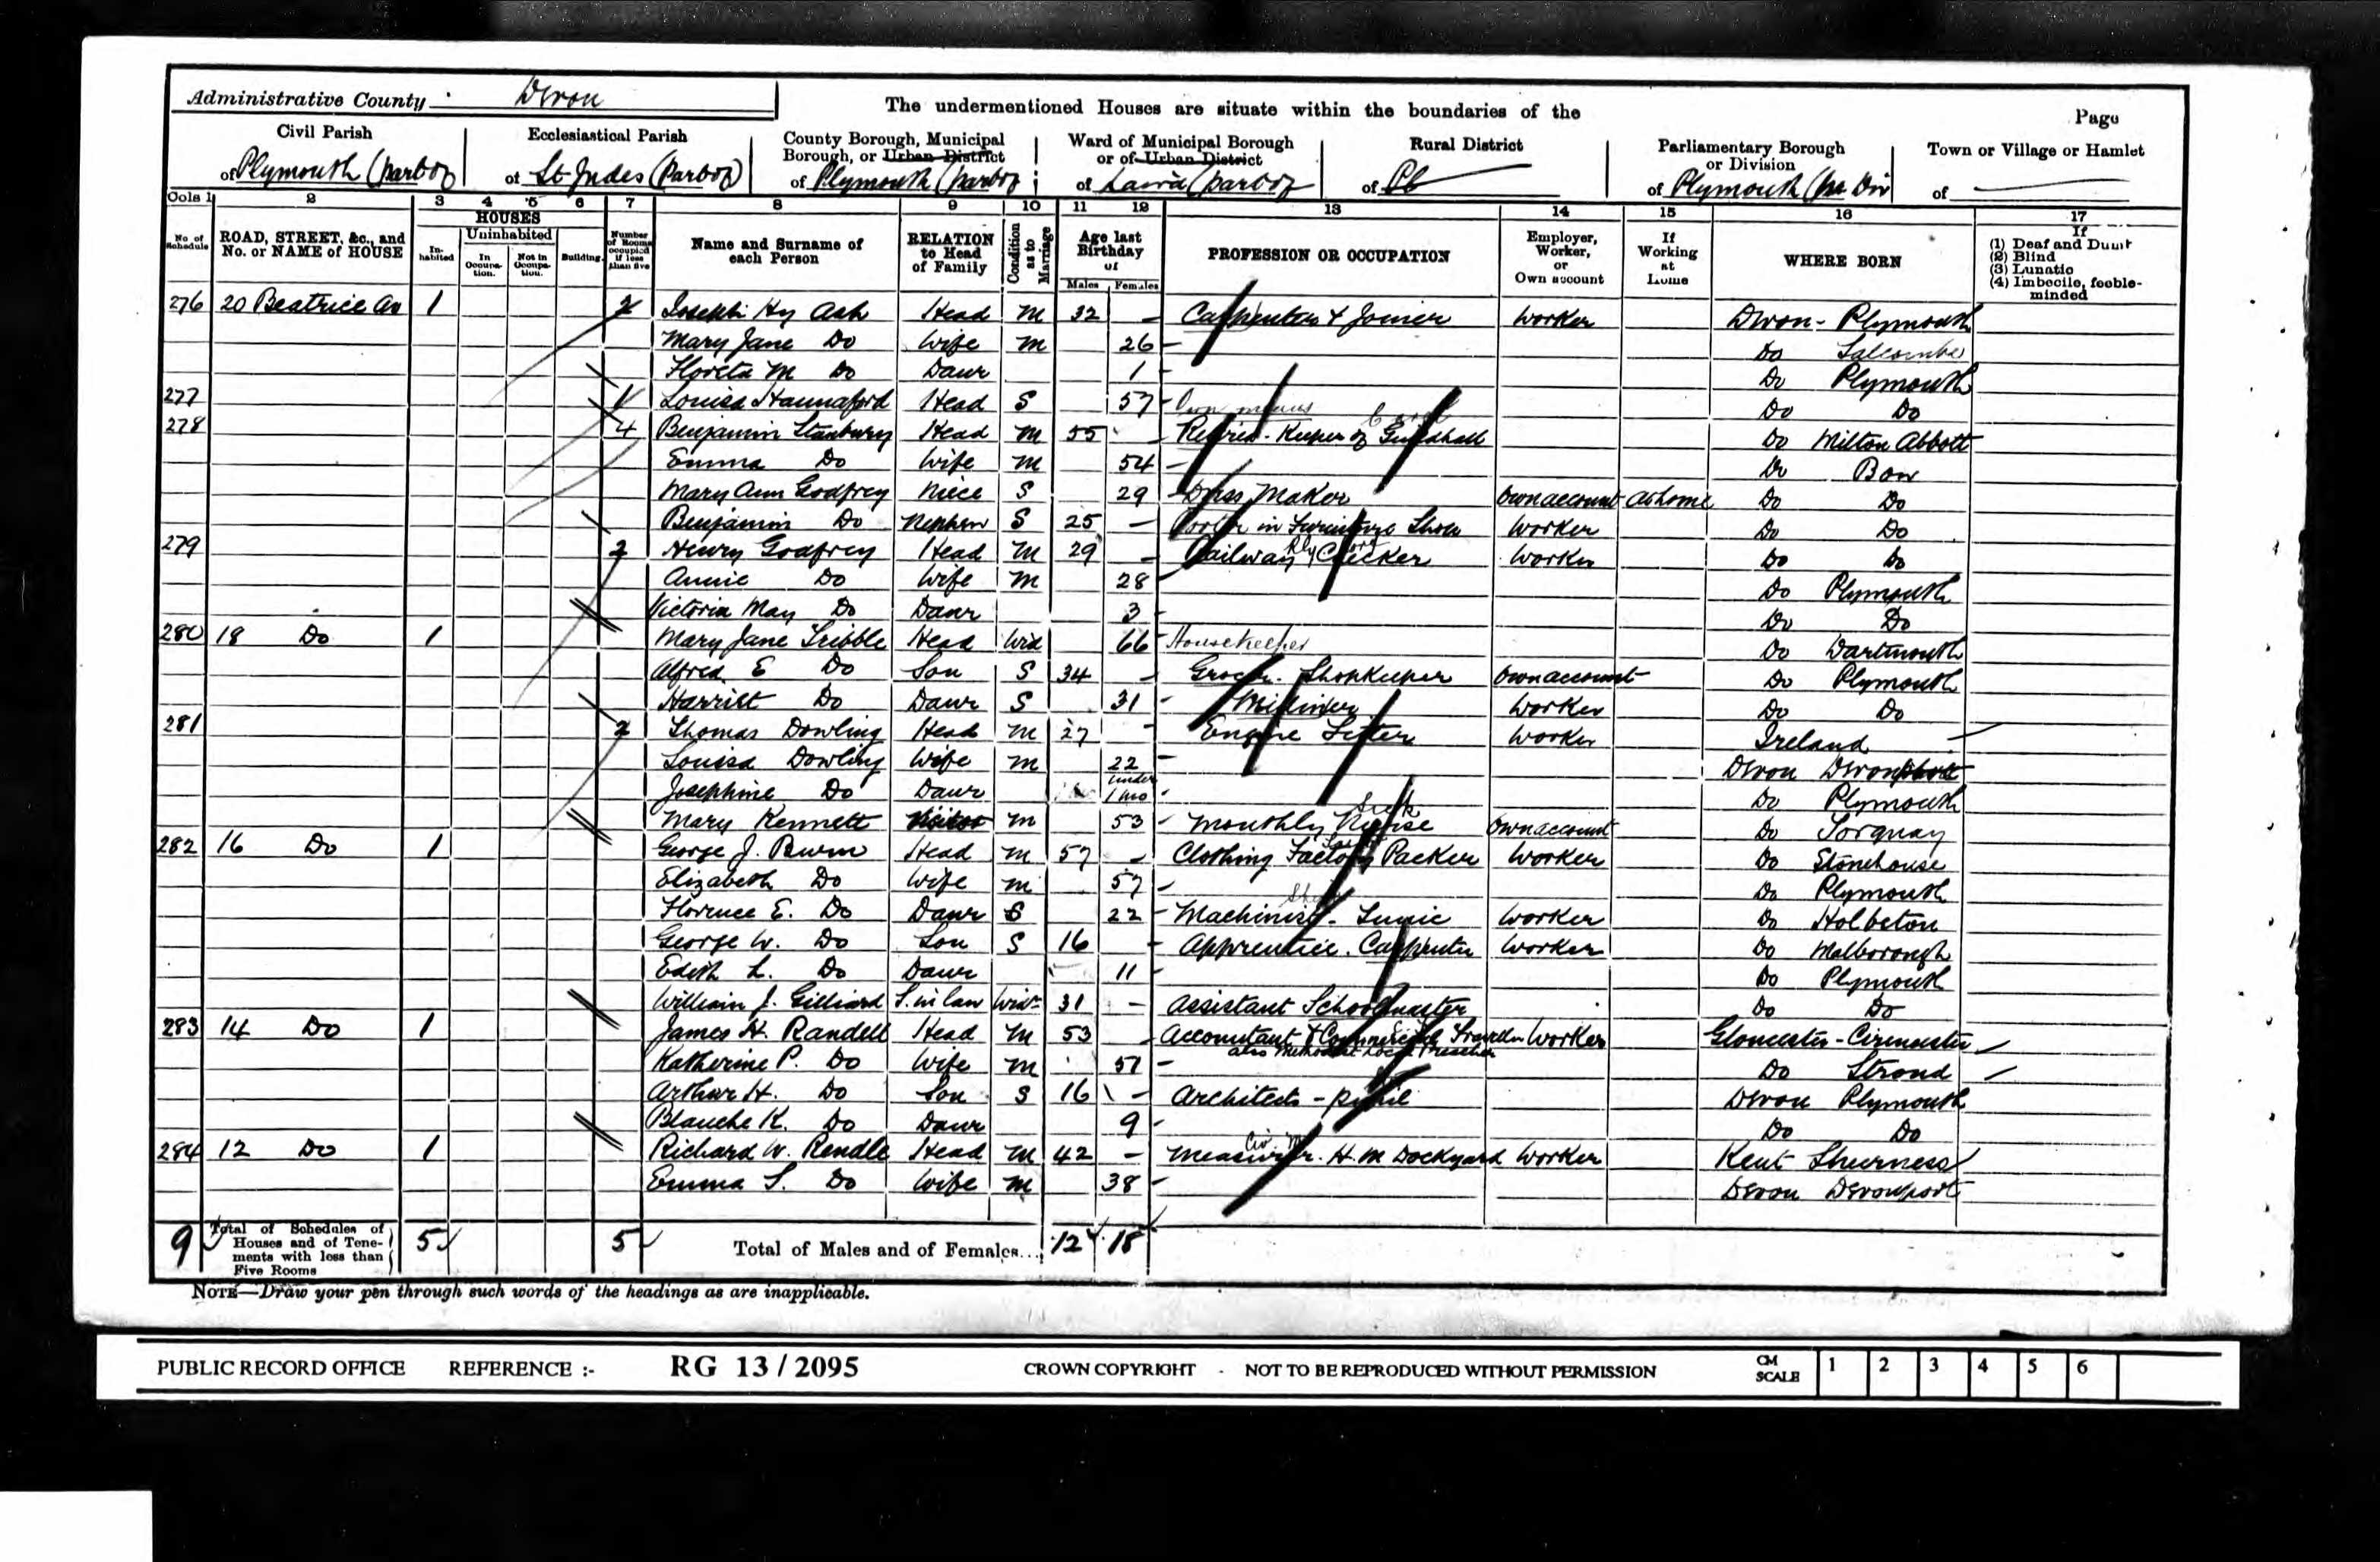 Administrative County Devon
The undermentioned Houses are situate within the boundaries of the
Page
Civil Parish
of Plymouth (part of)
Ecclesiastical Parish
of St Judes (Part of)
County Borough, Municipal Borough, or Urban District
of Plymouth (part of)
Ward of Municipal Borough or of Urban District
of Laira (part of)
Rural District
of
Parliamentary Borough or Division
of Plymouth
Town or Village or Hamlet
of
Cols 1 2 3 4 5 6 7 8 9 10 11 12 13 14 15 16 17
No. of Schedule
ROAD, STREET, &c., and No. or NAME of HOUSE
HOUSES
In-habited
Uninhabited
In Occupa-tion.
Not in Occupa-tion.
Building.
Number of Rooms occupied if less than five
Name and Surname of each Person
RELATION to Head of Family
Condition as to Marriage
Age last Birthday of
Males Females
PROFESSION OR OCCUPATION
Employer, Worker, or Own account
If Working at Home
WHERE BORN
If
(1) Deaf and Dumb
(2) Blind
(3) Lunatic
(4) Imbecile, feeble-minded
276 20 Beatrice Av 1 2 Joseph Hy Ash Head M 32 - Carpenter & Joiner Worker Devon - Plymouth
Mary Jane Do Wife M 26 - Do Salcombe
M Do Daur 1 - Do Plymouth
277 1 Louisa Hannaford Head S 57 - Own means Do Do
278 4 Benjamin Stanbury Head M 55 - Retired - Keeper of Guildhall Do Milton Abbott
Emma Do Wife M 54 - Do Bow
Mary Ann Godfrey Niece S 29 - Dress Maker Own account At home Do Do
Benjamin Do Nephew S 25 - Porter in Furniture Shop Worker Do Do
279 2 Henry Godfrey Head M 29 - Railway Checker Worker Do Do
Annie Do Wife M 28 - Do Plymouth
Victoria May Do Daur 3 - Do Do
280 18 Do 1 Mary Jane Tribble Head Wid 66 - Housekeeper Do Dartmouth
Alfred E Do Son S 34 - Grocer. Shopkeeper Own account Do Plymouth
Harriet Do Daur S 31 - Milliner Worker Do Do
281 2 Thomas Dowling Head M 27 - Engine Fitter Worker Ireland
Louisa Dowling Wife M 22 - Devon Devonport
Josephine Do Daur under 1 mo - Do Plymouth
Mary Kennett Visitor M 53 - Monthly Nurse Own account Do Torquay
282 16 Do 1 George J. Burn Head M 57 - Clothing Factory Packer Worker Do Stonehouse
Elizabeth Do Wife M 57 - Do Plymouth
Florence E. Do Daur S 22 - Machinist - Tunic Worker Do Holbeton
George W. Do Son S 16 - Apprentice. Carpenter Worker Do Malborough
Edith L. Do Daur 11 - Do Plymouth
William J. Gilliard S. in law Widr 31 - Assistant Schoolmaster Do Do
283 14 Do 1 James H. Randell Head M 53 - Accountant & Commercial Traveller Worker Gloucester - Cirencester
also Methodist Local Preacher
Katherine P. Do Wife M 51 - Do Stroud
Arthur H. Do Son S 16 - Architects - pupil Devon Plymouth
Blanche K. Do Daur 9 - Do Do
284 12 Do 1 Richard W. Rendle Head M 42 - Measurer. H.M Dockyard Worker Kent Sheerness
Emma S. Do Wife M 38 - Devon Devonport
9 Total of Schedules of Houses and of Tenements with less than Five Rooms 5 5 Total of Males and of Females... 12 18
NOTE—Draw your pen through such words of the headings as are inapplicable.
PUBLIC RECORD OFFICE REFERENCE :- RG 13 / 2095 CROWN COPYRIGHT - NOT TO BE REPRODUCED WITHOUT PERMISSION CM SCALE 1 2 3 4 5 6